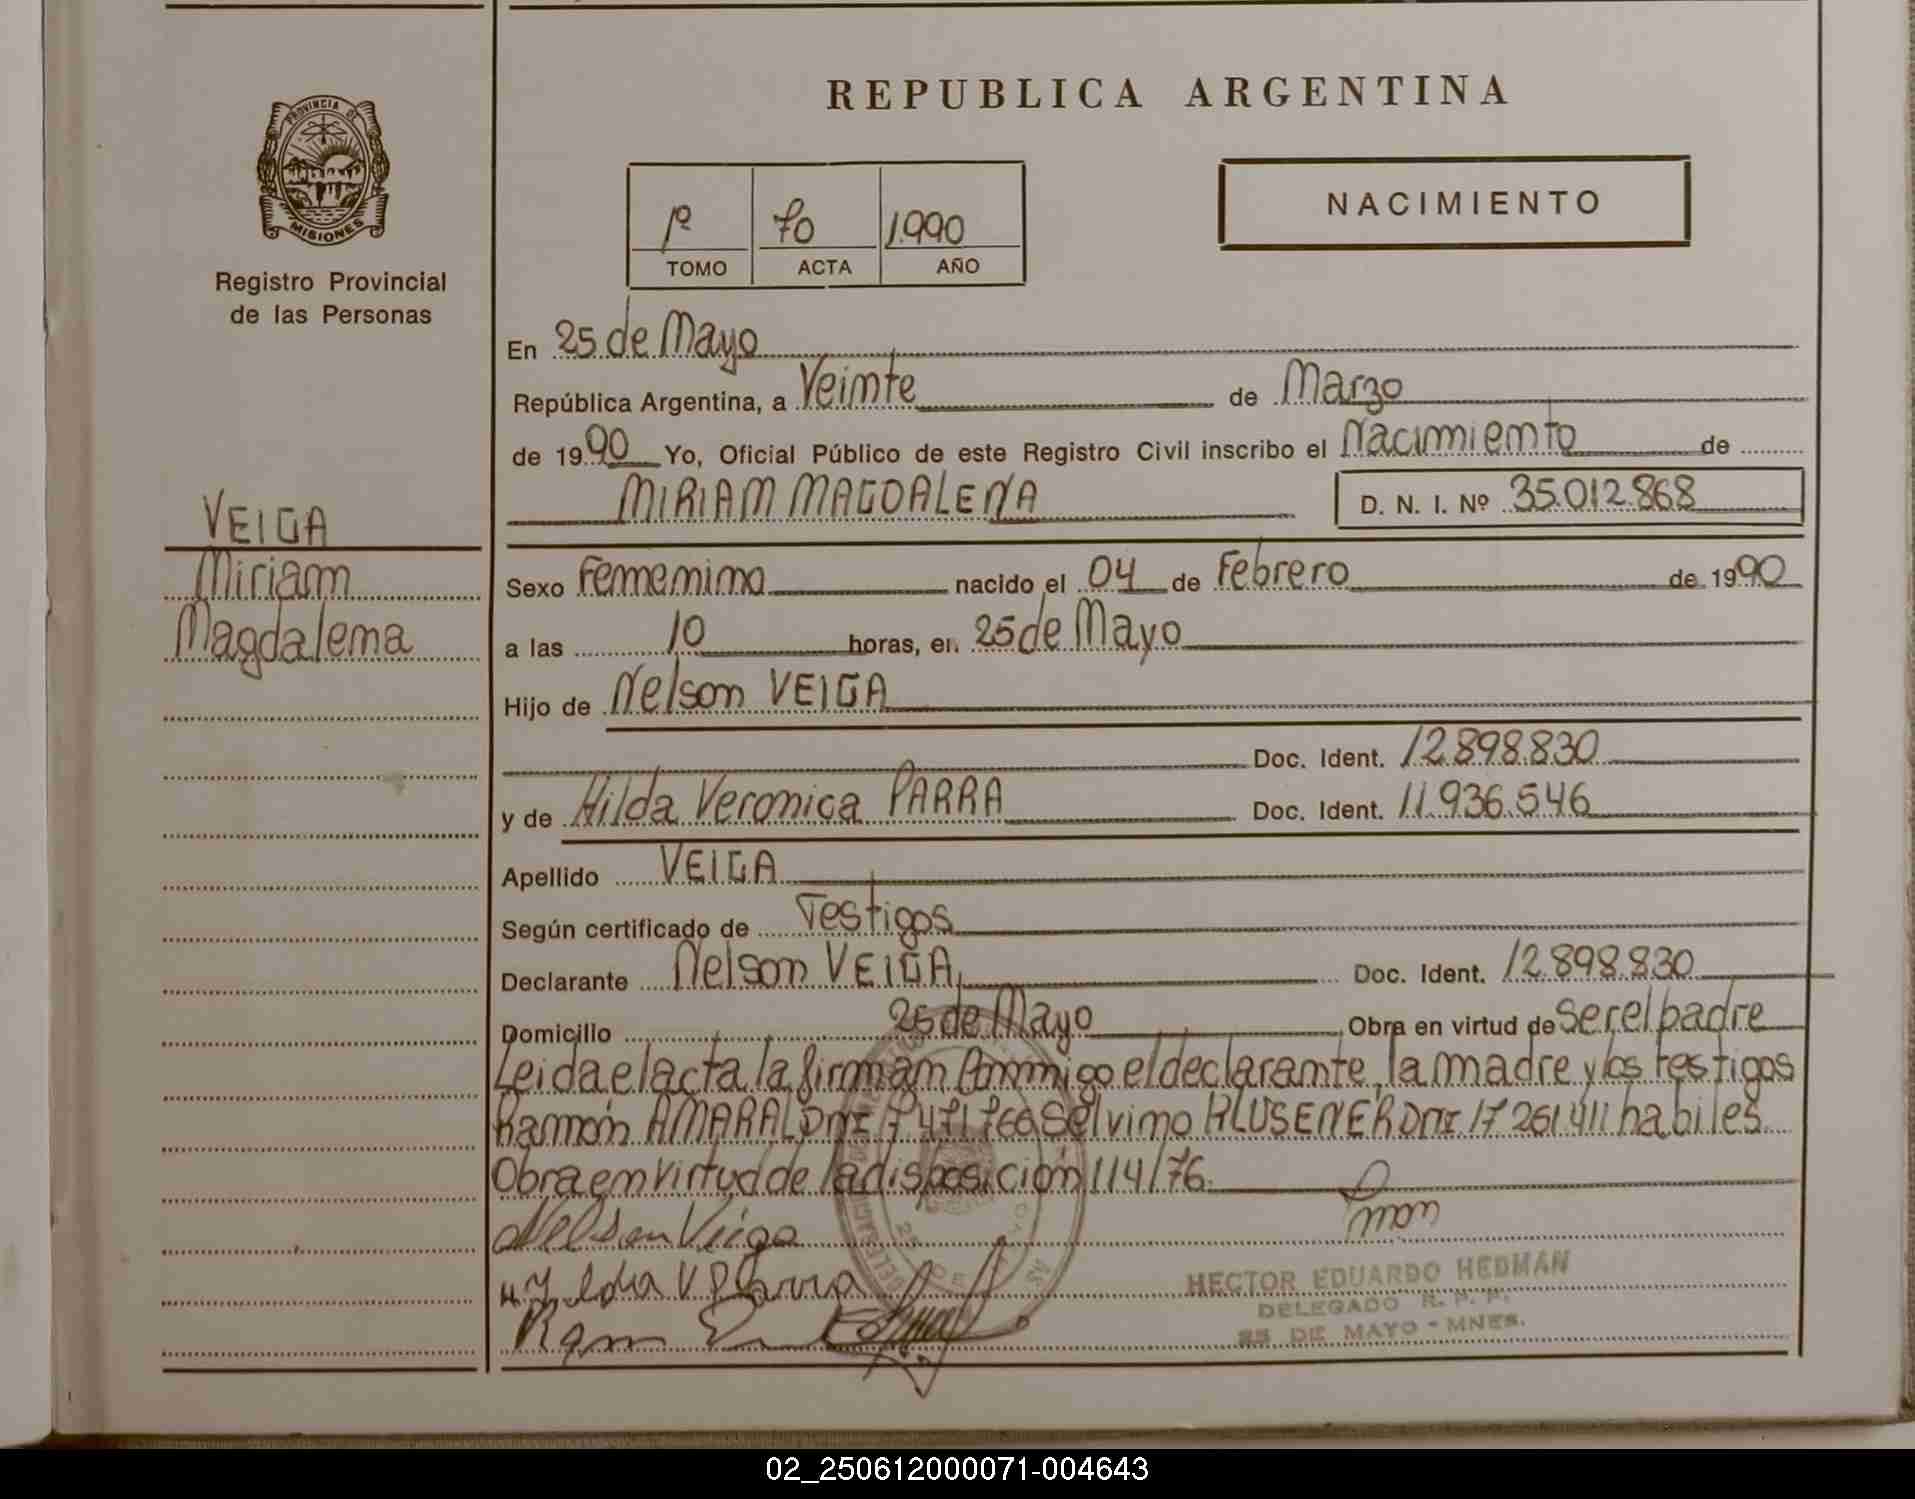 REPUBLICA ARGENTINA
PROVINCIA DE
MISIONES
Registro Provincial
de las Personas
1º 70 1.990
TOMO ACTA AÑO
NACIMIENTO
En 25 de Mayo
República Argentina, a Veinte de Marzo
de 1990 Yo, Oficial Público de este Registro Civil inscribo el Nacimiento de
MIRIAM MAGDALENA
D. N. I. Nº 35.012.868
VEIGA
Miriam
Magdalena
Sexo Femenino nacido el 04 de Febrero de 1990
a las 10 horas, en 25 de Mayo
Hijo de Nelson VEIGA
Doc. Ident. 12.898.830
y de Hilda Veronica PARRA Doc. Ident. 11.936.546
Apellido VEIGA
Según certificado de Testigos
Declarante Nelson VEIGA, Doc. Ident. 12.898.830
Domicilio 25 de Mayo Obra en virtud de ser el padre
Leida el acta la firman Conmigo el declarante, la madre y los testigos
Ramón AMARAL DNI 7 471 760 Selvino KLUSENER DNI 17 261 411 habiles.
Obra en virtud de la disposición 114/76.
Nelson Veiga
V Parra
HECTOR EDUARDO HEDMAN
DELEGADO R. P. P.
25 DE MAYO - MNES.
02_250612000071-004643